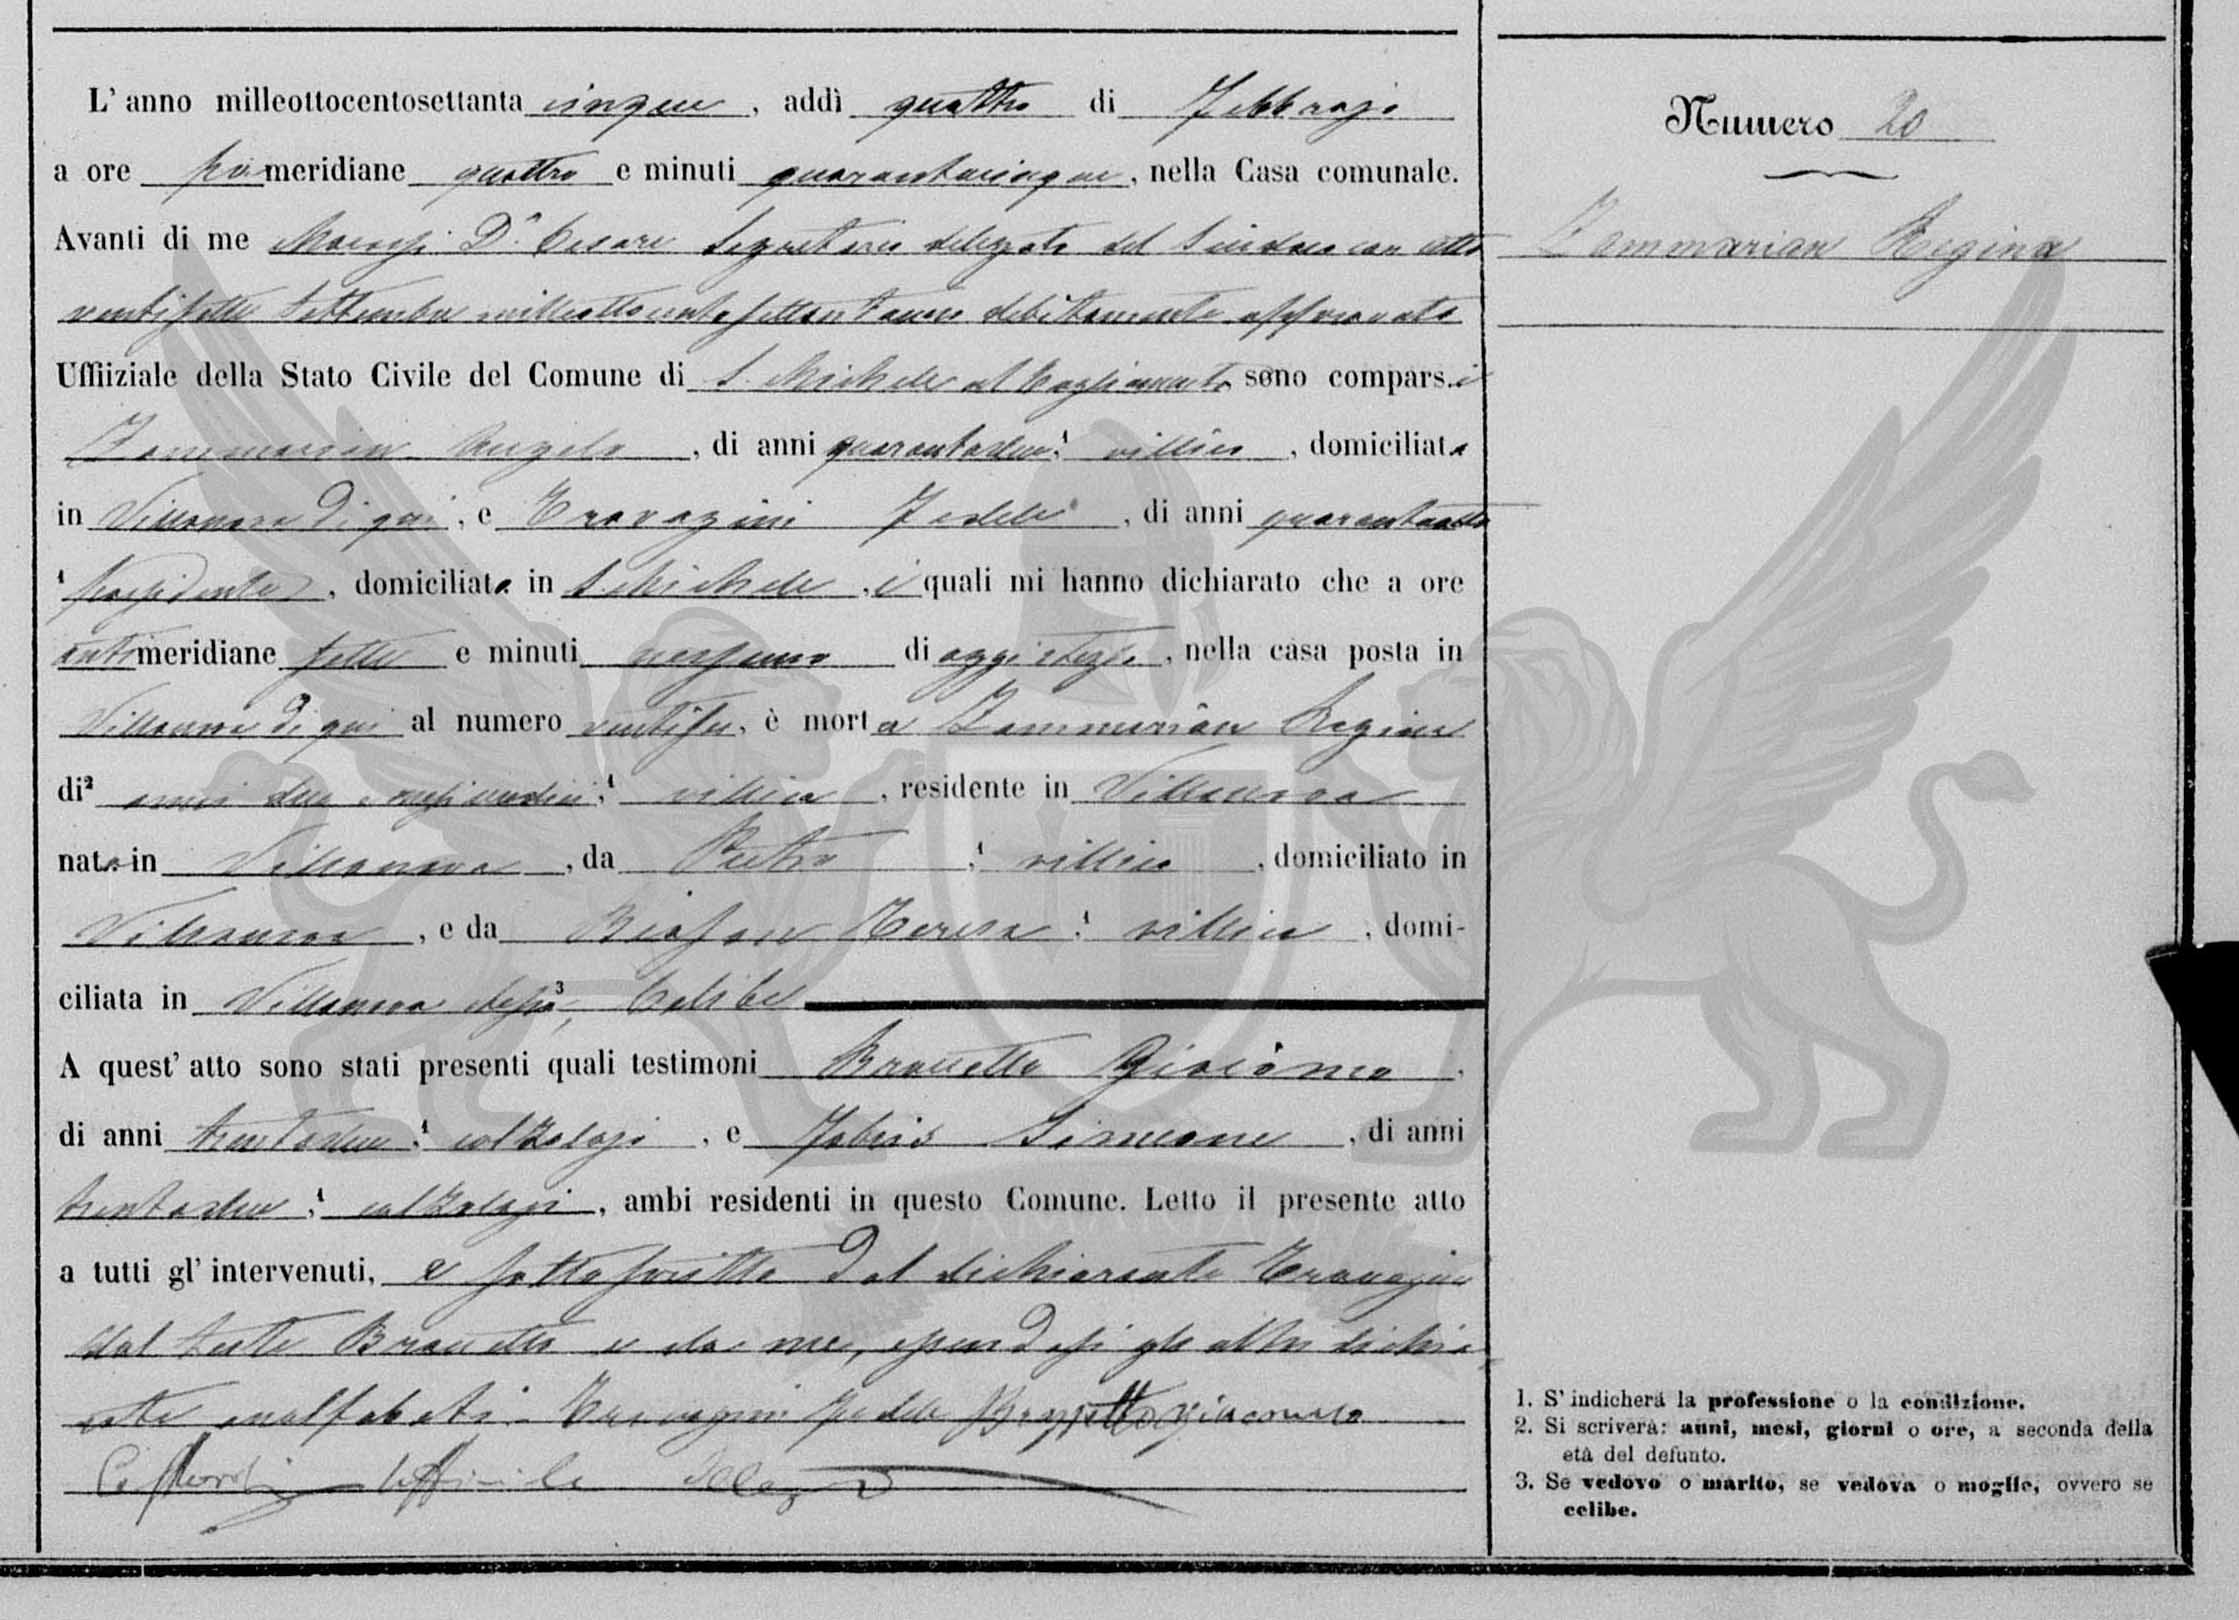 L' anno milleottocentosettanta cinque, addì quattro di Febbrajo
a ore pomeridiane quattro e minuti quarantacinque, nella Casa comunale.
Avanti di me D.r Cesare Segretario delegato del Sindaco con atto
ventisette Settembre milleottocentosettantauno debitamente approvato
Uffiiziale della Stato Civile del Comune di S. Michele al Tagliamento sono compars.i
Zammarian Angelo, di anni quarantadue 1 villico, domiciliato
in Villanova di qui, e Travagini Fedele, di anni quarantaotto
1 possidente, domiciliato in S. Michele, i quali mi hanno dichiarato che a ore
antimeridiane sette e minuti nessuno di oggi stesso, nella casa posta in
Villanova di qui al numero ventisei, è morta Zammarian Regina
di 2 anni due e mesi undici, 1 villica, residente in Villanova
nata in Villanova, da Pietro, 1 villico, domiciliato in
Villanova, e da Biason Teresa, 1 villica, domi-
ciliata in Villanova stessa, 3 Celibe
A quest' atto sono stati presenti quali testimoni Giacomo,
di anni trentadue, 1 calzolajo, e Fabris Simeone, di anni
trentadue, 1 calzolajo, ambi residenti in questo Comune. Letto il presente atto
a tutti gl' intervenuti, e sottoscritto dal dichiarante Travagini
dal teste e da me, essendosi gli altri dichia
rati analfabeti. Travagini Fedele Giacomo
Uffiziale
Numero 20
Zammarian Regina
1. S' indicherà la professione o la condizione.
2. Si scriverà: anni, mesi, giorni o ore, a seconda della
età del defunto.
3. Se vedovo o marito, se vedova o moglie, ovvero se
celibe.